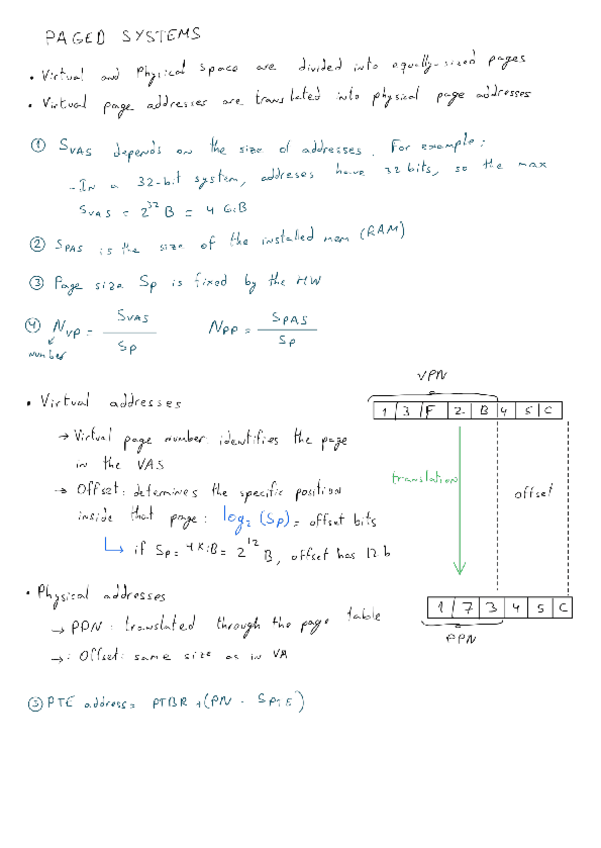 PAGED SYSTEMS
• Virtual and Physical space are divided into equally-sized pages
• Virtual page addresses are translated into physical page addresses
① SVAS depends on the size of addresses. For example:
- In a 32-bit system, addreses have 32 bits, so the max
SVAS = 2^32 B = 4 GiB
② SPAS is the size of the installed mem (RAM)
③ Page size Sp is fixed by the HW
④ NVP = SVAS / Sp NPP = SPAS / Sp
number
VPN
• Virtual addresses
1 3 F 2 B 4 5 C
→ Virtual page number identifies the page
in the VAS
translation
offset
→ Offset: determines the specific position
inside that page: log2 (Sp) = offset bits
↳ if Sp = 4KiB = 2^12 B, offset has 12 b
• Physical addresses
1 7 3 4 5 C
→ PPN: translated through the page table
PPN
→: Offset: same size as in VA
⑤ PTE address = PTBR + (PN · SPTE)